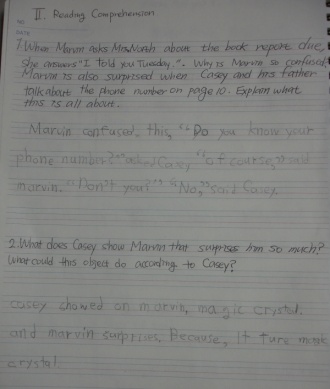 II. Reading Comprehension
NO.
DATE
1. When Marvin asks Mrs. North about the book report due,
she answers "I told you Tuesday.". Why is Marvin so confused
Marvin is also surprised when Casey and his father
talk about the phone number on page 10. Explain what
this is all about.
Marvin confused, this, "Do you know your
phone number?" asked Casey "of course," said
marvin. "Don't you?" "No," said Casey.
2. What does Casey show Marvin that surprises him so much?
What could this object do according to Casey?
casey chowed on marvin, magic crystal.
and marvin surprises. Because, it ture
crystal.